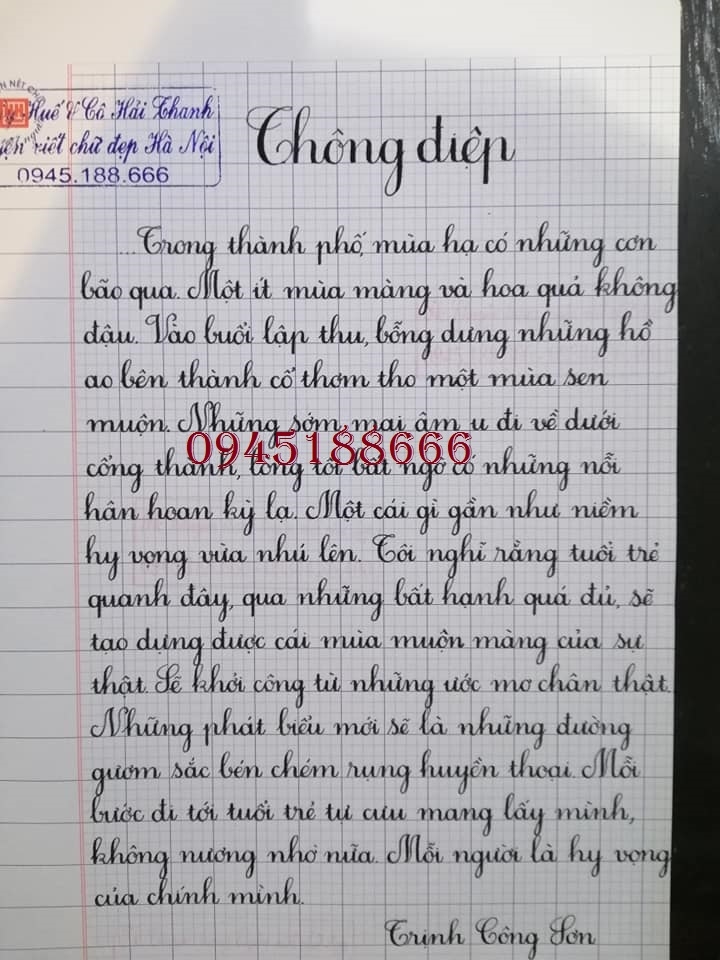 N NÉT CH
Huế & Cô Hải Thanh
viết chữ đẹp Hà Nội
0945.188.666
Thông điệp
...Trong thành phố, mùa hạ có những cơn
bão qua. Một ít mùa màng và hoa quả không
đậu. Vào buổi lập thu, bỗng dưng những hồ
ao bên thành cổ thơm tho một mùa sen
muộn. Những sớm mai âm u đi về dưới
0945188666
cổng thành, lòng tôi bất ngờ có những nỗi
hân hoan kỳ lạ. Một cái gì gần như niềm
hy vọng vừa nhú lên. Tôi nghĩ rằng tuổi trẻ
quanh đây, qua những bất hạnh quá đủ, sẽ
tạo dựng được cái mùa muộn màng của sự
thật. Sẽ khởi công từ những ước mơ chân thật.
Những phát biểu mới sẽ là những đường
gươm sắc bén chém rụng huyền thoại. Mỗi
bước đi tới tuổi trẻ tự cưu mang lấy mình,
không nương nhờ nữa. Mỗi người là hy vọng
của chính mình.
Trịnh Công Sơn